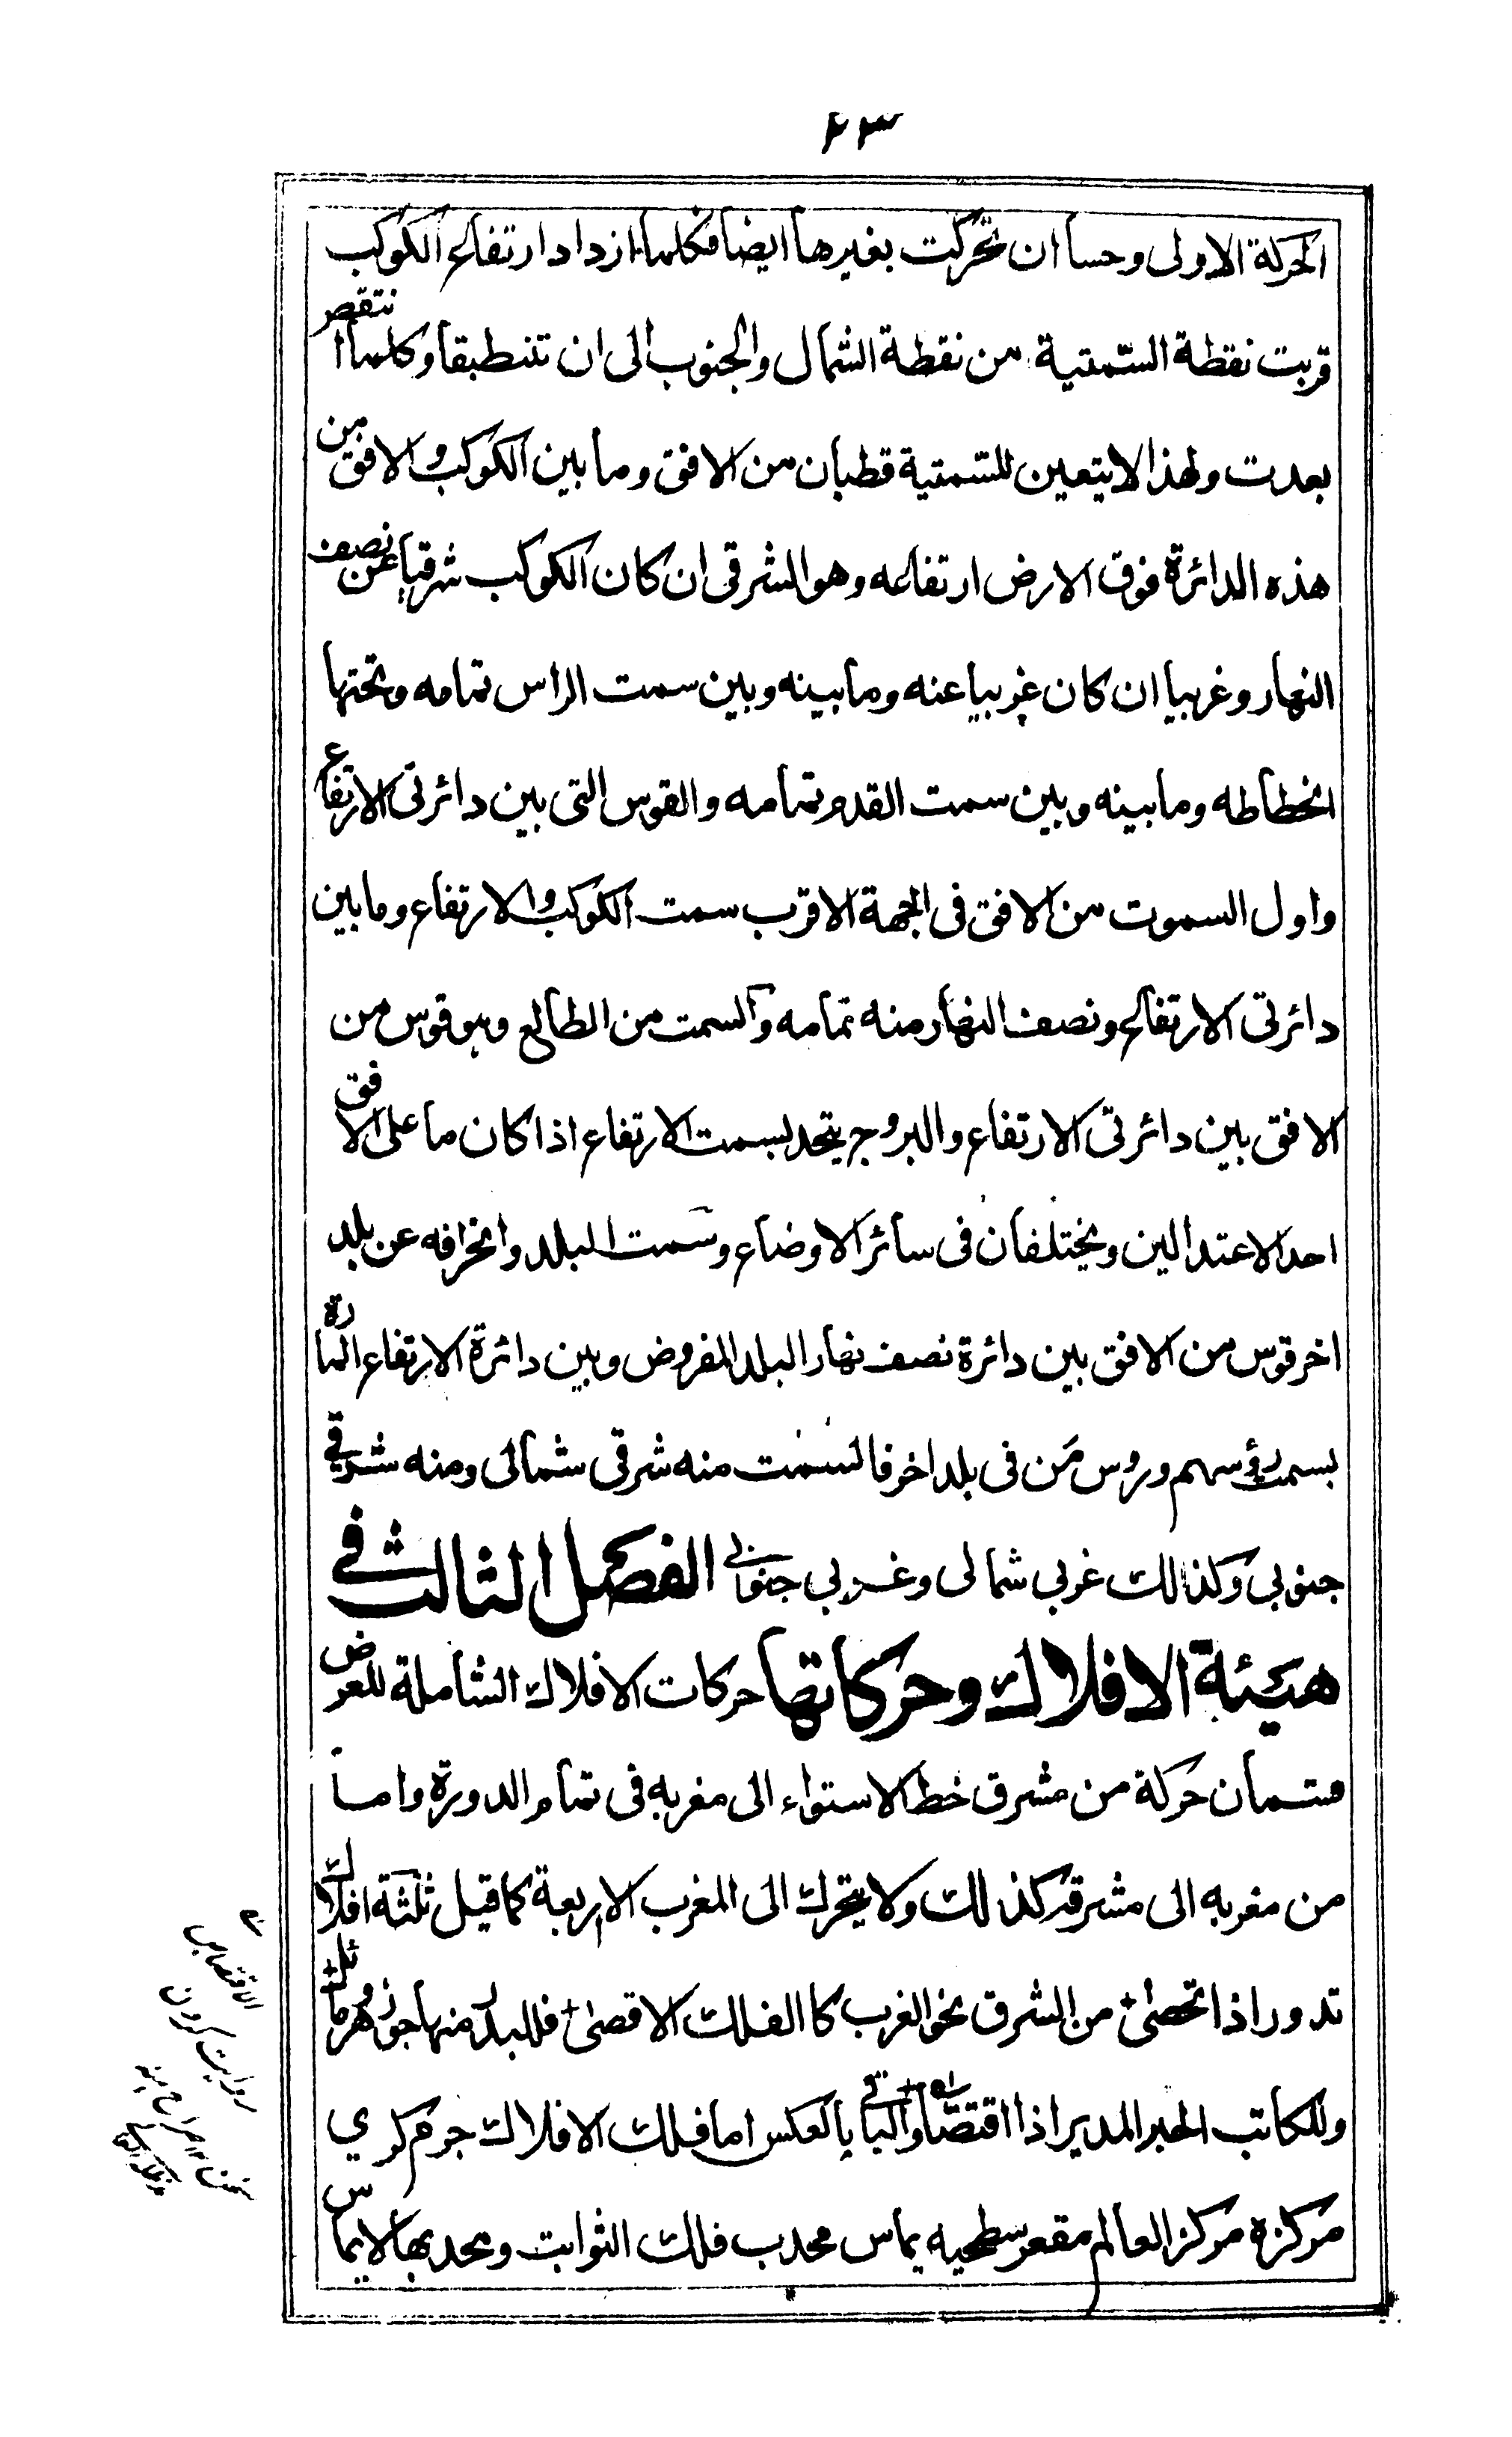 ٢٣
الحركة الاولى وحسا ان تحركت بغيرها ايضا فكلما ازداد ارتفاع الكوكب
قربت نقطة السّمتية من نقطة الشمال والجنوب الى ان تنطبقا وكلما انتقص
بعدت ولهذا لا يتعين للسّمتية قطبان من الافق وما بين الكوكب والافق من
هذه الدائرة فوق الارض ارتفاعه وهو الشرقى ان كان الكوكب شرقيا عن نصف
النهار وغربيا ان كان غربيا عنه وما بينه وبين سمت الراس تمامه وتحتها
انحطاطه وما بينه وبين سمت القدم تمامه والقوس التى بين دائرتى الارتفاع
واول السموت من الافق فى الجهة الاقرب سمت الكوكب والارتفاع وما بين
دائرتى الارتفاع ونصف النهار منه تمامه والسمت من الطالع وهو قوس من
الافق بين دائرتى الارتفاع والبروج يتحد بسمت الارتفاع اذا كان ما على الافق
احد الاعتدالين ويختلفان فى سائر الاوضاع وسمت البلد وانحرافه عن بلد
اخر قوس من الافق بين دائرة نصف نهار البلد المفروض وبين دائرة الارتفاع المارة
بسمت رؤسهم وروس مَن فى بلد اخر فالسمت منه شرقى شمالى ومنه شرقي
جنوبي وكذالك غربي شمالى وغربي جنوبي الفصل الثالث في
هيئة الافلاك وحركاتها حركات الافلاك الشاملة للعرض
قسمان حركة من مشرق خط الاستواء الى مغربه فى تمام الدورة واما
من مغربه الى مشرقه كذلك ولا يتحرك الى المغرب الا اربعة كما قيل ثلثة افلاك
تدور اذا تحصىٰ من الشرق نحو الغرب كالفلك الاقصىٰ فللبدر منها جوزهر مائل
وللكاتب الحبر المدير اذا اقتصا والباقي بالعكس اما فلك الافلاك جرم كري
مركزه مركز العالم مقعر سطحيه يماس محدب فلك الثوابت ومحدبها لا يماس
٢
الاقتصاص
روايت كردن